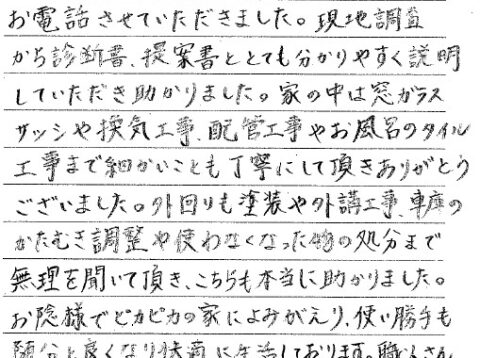 お電話させていただきました。現地調査
から診断書、提案書ととても分かりやすく説明
していただき助かりました。家の中は窓ガラス
サッシや換気工事、配管工事やお風呂のタイル
工事まで細かいことも丁寧にして頂きありがとう
ございました。外回りも塗装や外講工事、車庫の
かたむき調整や使わなくなった物の処分まで
無理を聞いて頂き、こちらも本当に助かりました。
お陰様でピカピカの家によみがえり、使い勝手も
随分と良くなり快適に生活しております。職人さん